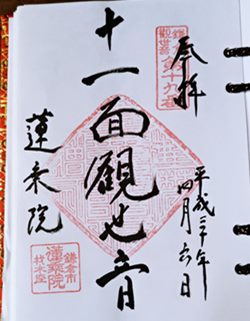 奉拝
鎌倉
觀世音
第十九番
平成三十年
四月六日
十一面觀世音
蓮乗院
鎌倉市
蓮乗院
材木座